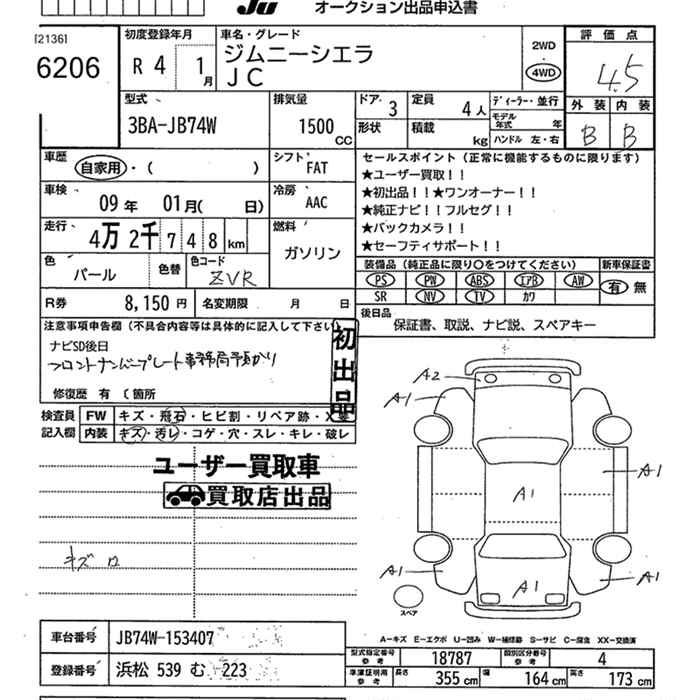 Ju オークション出品申込書
[2136]
6206
初度登録年月
R 4 1月
車名・グレード
ジムニーシエラ
JC
2WD
4WD
評価点
4.5
外装 内装
B B
型式
3BA-JB74W
排気量
1500 cc
ドア 3
形状
定員 4人
積載 kg
ディーラー・並行
モデル年式 年
ハンドル 左・右
車歴
自家用・( )
シフト
FAT
車検
09年 01月( 日)
冷房
AAC
走行
4万2千748km
燃料
ガソリン
色
パール
色替
色コード
ZVR
R券 8,150円
名変期限 月 日
セールスポイント(正常に機能するものに限ります)
★ユーザー買取!!
★初出品!!★ワンオーナー!!
★純正ナビ!!フルセグ!!
★バックカメラ!!
★セーフティサポート!!
装備品(純正品に限り○をつけてください)
PS PW ABS エアB AW
SR NV TV カワ
新車保証書
有 無
後日品
保証書、取説、ナビ説、スペアキー
注意事項申告欄(不具合内容等は具体的に記入して下さい
ナビSD後日
フロントナンバープレート事務局予預かり
修復歴 有 ( 箇所
初出品
検査員記入欄
FW キズ・飛石・ヒビ割・リペア跡・X
内装 キズ・汚レ・コゲ・穴・スレ・キレ・破レ
ユーザー買取車
買取店出品
キズ ロ
A2
A1
A1
A1
A1
A1
A1
スペア
A-キズ E-エクボ U-凹み W-補修跡 S-サビ C-腐食 XX-交換済
車台番号 JB74W-153407
登録番号 浜松 539 む 223
型式指定番号 参考 18787
類別区分番号 参考 4
車庫証明用 参考
長さ 355 cm
幅 164 cm
高さ 173 cm